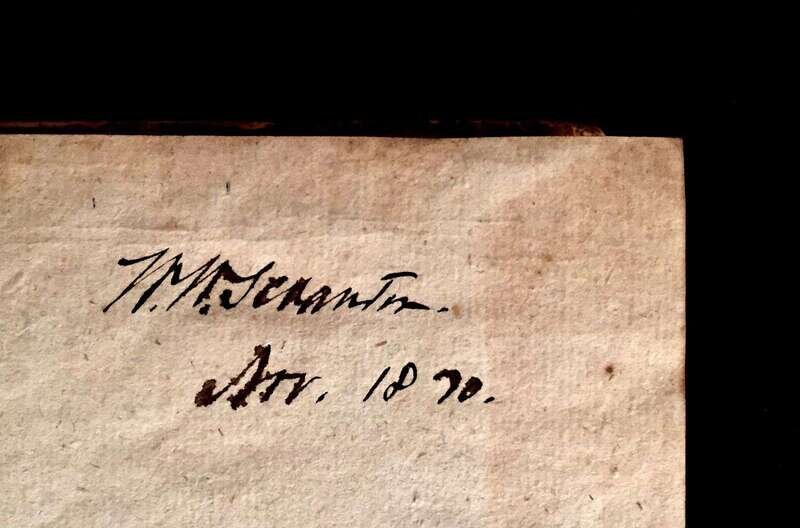 W. W. Scranton.
Nov. 1870.